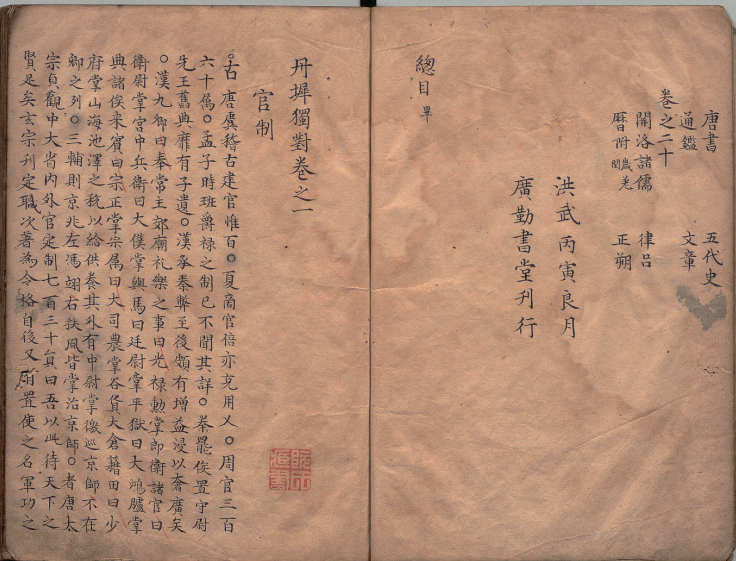 唐書 五代史
通鑑 文章
卷之二十
關洛諸儒 律呂
曆附 正朔
總目畢
洪武丙寅良月
廣勤書堂刊行
丹墀獨對卷之一
官制
○古 唐虞稽古建官惟百○夏商官倍亦克用乂○周官三百
六十属○孟子時班爵禄之制已不聞其詳○秦罷侯置守尉
先王舊典靡有孑遺○漢承秦弊至後頗有增益浸以奢廣矣
○漢九卿曰奉常主郊廟礼樂之事曰光禄勳掌郎衛諸官曰
衛尉掌宮中兵衛曰大僕掌輿馬曰廷尉掌平獄曰大鴻臚掌
典諸侯来賓曰宗正掌宗属曰大司農掌谷貨大倉籍田曰少
府掌山海池澤之稅以給供养其外有中尉掌徼巡京師不在
卿之列○三輔則京兆左馮翊右扶風皆掌治京師○者唐太
宗貞觀中大省內外官定制七百三十員曰吾以此待天下之
賢足矣玄宗刊定職次著為令格自後又有置使之名軍功之